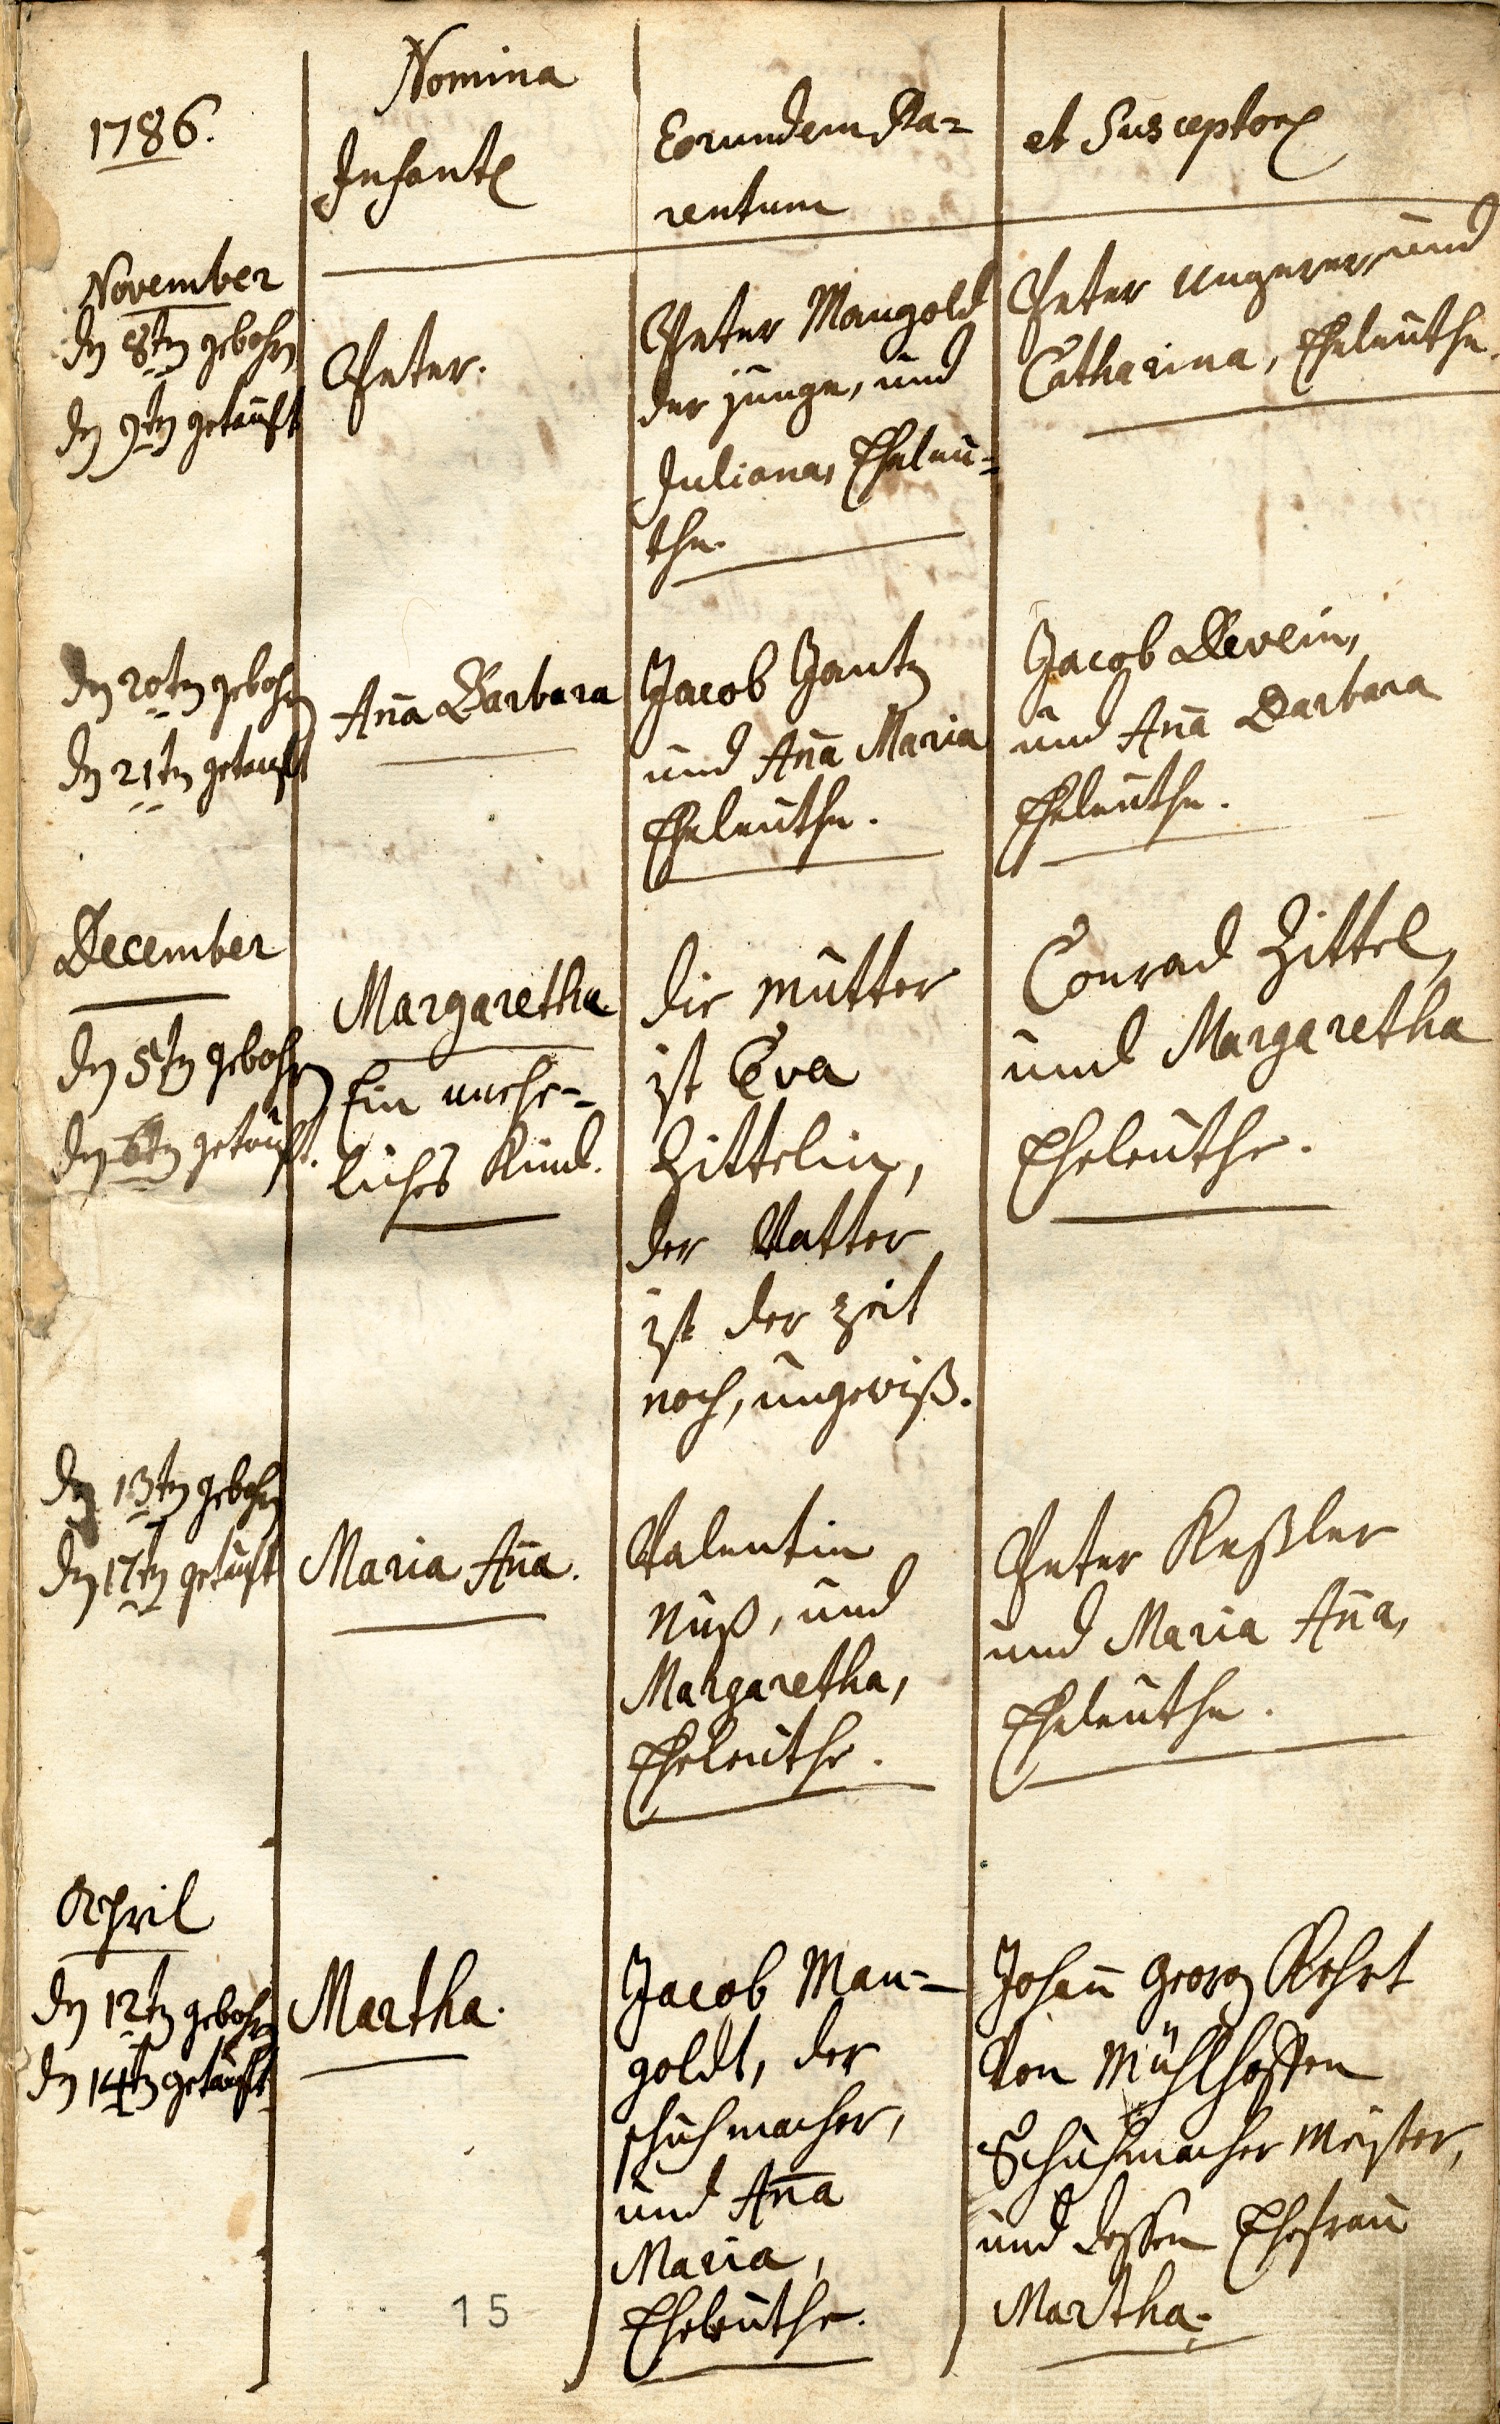 1786.
Nomina
Infant.
Eorundem Pa-
rentum
et Susceptor.
November
dn 8tn gebohrn
dn 9tn getauft
Peter.
Peter Mangold
der junge, und
Juliana, Eheleu-
the.
Peter Ungerer, und
Catharina, Eheleuthe.
dn 20tn gebohrn
dn 21tn getauft
Ana Barbara
Jacob Jantz
und Ana Maria
Eheleuthe.
Jacob Dewein,
und Ana Barbara
Eheleuthe.
December
dn 5tn gebohrn
dn 6tn getauft.
Margaretha
Ein unehe-
liches Kind.
die Mutter
ist Eva
Zittelin,
der Vatter
ist der Zeit
noch, ungewiß.
Conrad Zittel,
und Margaretha
Eheleuthe.
dn 13tn gebohrn
dn 17tn getauft
Maria Ana.
Valentin
Nuß, und
Margaretha,
Eheleuthe.
Peter Keßler
und Maria Ana,
Eheleuthe.
April
dn 12tn gebohrn
dn 14tn getauft
Martha.
Jacob Man-
goldt, der
schuhmacher,
und Ana
Maria,
Eheleuthe.
Johan Georg
Von Mühlhoffen
Schuhmacher Meister,
und dessen Ehefrau
Martha.
15